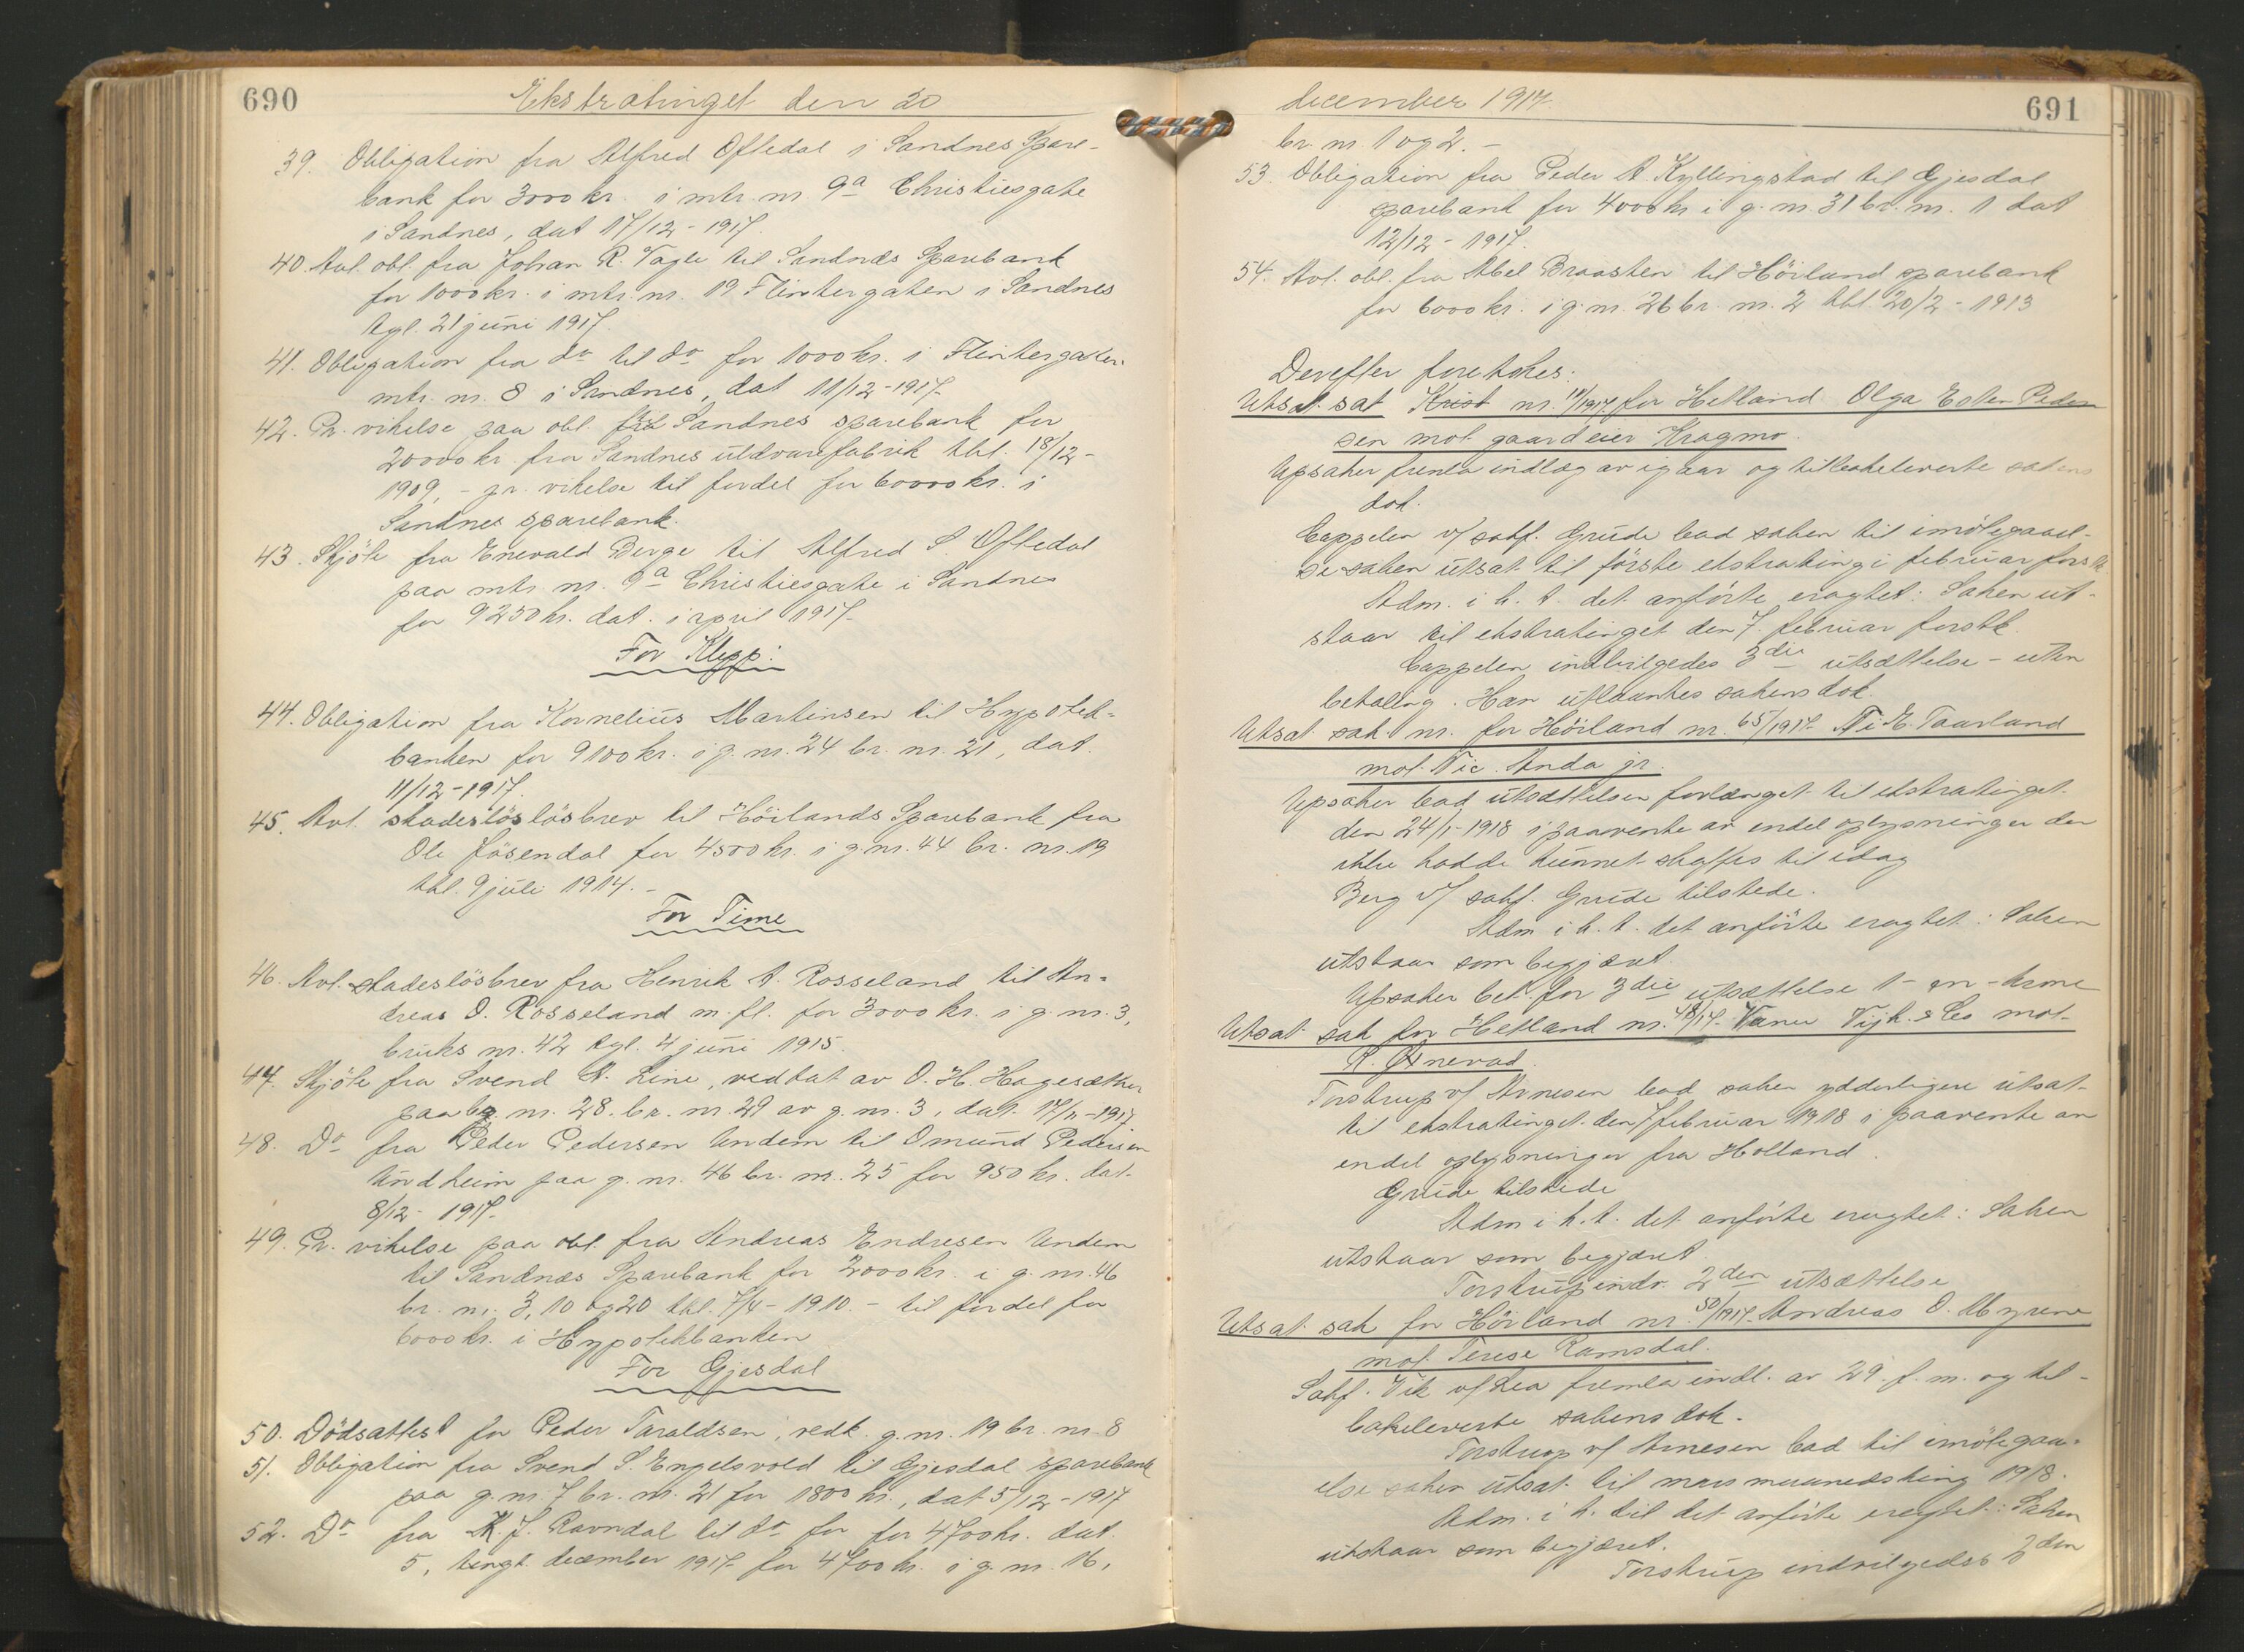 690
Ekstratinget den 20
39. Obligation fra Alfred Oftedal i Sandnes Spare-
bank for 3000 kr. i mtr. nr 9a Christiesgate
i Sandnes, dat 17/12-1917.
40. Avl. obl. fra Johan R. Vagle til Sandnæs Sparebank
for 1000 kr. i mtr. nr. 19 Flintergaten i Sandnes
tgl. 21 juni 1917.
41. Obligation fra do til do for 1000 kr. i Flintergaten
mtr. nr. 8 i Sandnes, dat 11/12-1917
42. Pr. vikelse paa obl. til Sandnes sparebank for
20000 kr. fra Sandnes uldvarefabrik tbl. 18/12-
1909, - pr. vikelse til fordel for 60000 kr. i
Sandnes sparebank.
43. Skjöte fra Enevald Berge til Alfred S. Oftedal
paa mtr nr. 9a Christiesgate i Sandnes
for 9250 kr. dat. i april 1917.
For Klepp:
44. Obligation fra Kornelius Martinsen til Hypotek-
banken for 9100 kr. i g. nr. 24 br. nr. 21, dat.
11/12-1917.
45. Avl. skadeslöslösbrev til Höilands Sparebank fra
Ole Jösendal for 4500 kr. i g. nr. 44 br. nr. 19
tbl. 9 juli 1914. -
For Time
46. Avl. skadeslösbrev fra Henrik A. Rosseland til An-
dreas O. Rosseland m. fl. for 3000 kr. i g. nr. 3,
bruks nr. 42 tgl. 4 juni 1915.
47. Skjöte fra Svend A. Line, vedtat av O. H. Hagesæther
paa nr. 28. br. nr. 29 av g. nr. 3, dat. 17/11-1917
48. Do fra Peder Pedersen Undem til Omund Pedersen
Undheim paa g. nr. 46 br. nr. 25 for 950 kr. dat.
8/12- 1917.
49. Pr. vikelse paa obl. fra Andreas Endresen Undem
til Sandnæs Sparebank for 2000 kr. i g. nr. 46
br. nr. 3, 10 og 20 tbl. 7/4-1910. - til fordel for
6000 kr. i Hypotekbanken
For Gjesdal
50. Dödsattest for Peder Taraldsen, vedk. g. nr. 19 br. nr. 8
51. Obligation fra Svend S. Engelsvold til Gjesdal sparebank
paa g. nr. 7 br. nr. 21 for 1800 kr., dat 5/12-1917
52. Do fra J. Ravndal til do for for 4700 kr. dat.
5, tingl. december 1917 for 4700 kr. i g. nr. 16,
december 1917.
691
br. nr. 1 og 2. -
53. Obligation fra Peder A. Kyllingstad til Gjesdal
sparebank for 4000 kr i g. nr. 31 br. nr. 1 dat
12/12-1917.
54. Avl. obl. fra Abel Braasten til Höiland sparebank
for 6000 kr. i g. nr. 26 br. nr. 2 tbl. 20/2-1913
Derefter foretokes:
Utsat sat nr. 11/1917 for Hetland Olga Peder
sen mot gaardeier Kragmo.
Upsaker fremla indlæg av igaar og tilbakeleverte sakens
dok.
Cappelen v/ sakf. Grude bad saken til imötegaael-
se saken utsat til förste ekstrating i februar førstk
Adm. i h. t. det anförte eragtet: Saken ut-
staar til ekstratinget den 7. februar førstk.
Cappelen indvilgedes 3die utsættelse - uten
betaling. Han utlaantes sakens dok.
Utsat sak nr. for Höiland nr. 65/1917 E. Taarland
mot Nic. Anda jr.
Upsaker bad utsættelsen forlænget til ekstratinget
den 24/1-1918 i paavente av endel oplysninger der
ikke hadde kunnet skaffes til idag
Berg v/ sakf. Grude tilstede.
Adm i h. t. det anförte eragtet: Saken
utstaar som begjæret.
Upsaker bet. for 3die utsættelse 1 - en - krone
Utsat sak for Hetland nr. 48/17 Vijk. & Co mot
R. Ognevad.
Torstrup v/ Arnesen bad saken ydderligere utsat
til ekstratinget den 7 februar 1918 i paavente av
endel oplysninger fra Holland.
Grude tilstede
Adm i h. t. det anförte eragtet: Saken
utstaar som begjæret.
Torstrup indr. 2den utsættelse
Utsat sak for Höiland nr. 50/1917. Andreas O. Myrene
mot Terese Ramsdal.
Sakf. Vik v/ Lea fremla indl. av 29. f. m. og til-
bakeleverte sakens dok.
Torstrup v/ Arnesen bad til imötegaa-
else saken utsat til mars maanedsting 1918.
Adm. i h. til det anförte eragtet: Saken
utstaar som begjæret.
Torstrup indvilgedes 2den